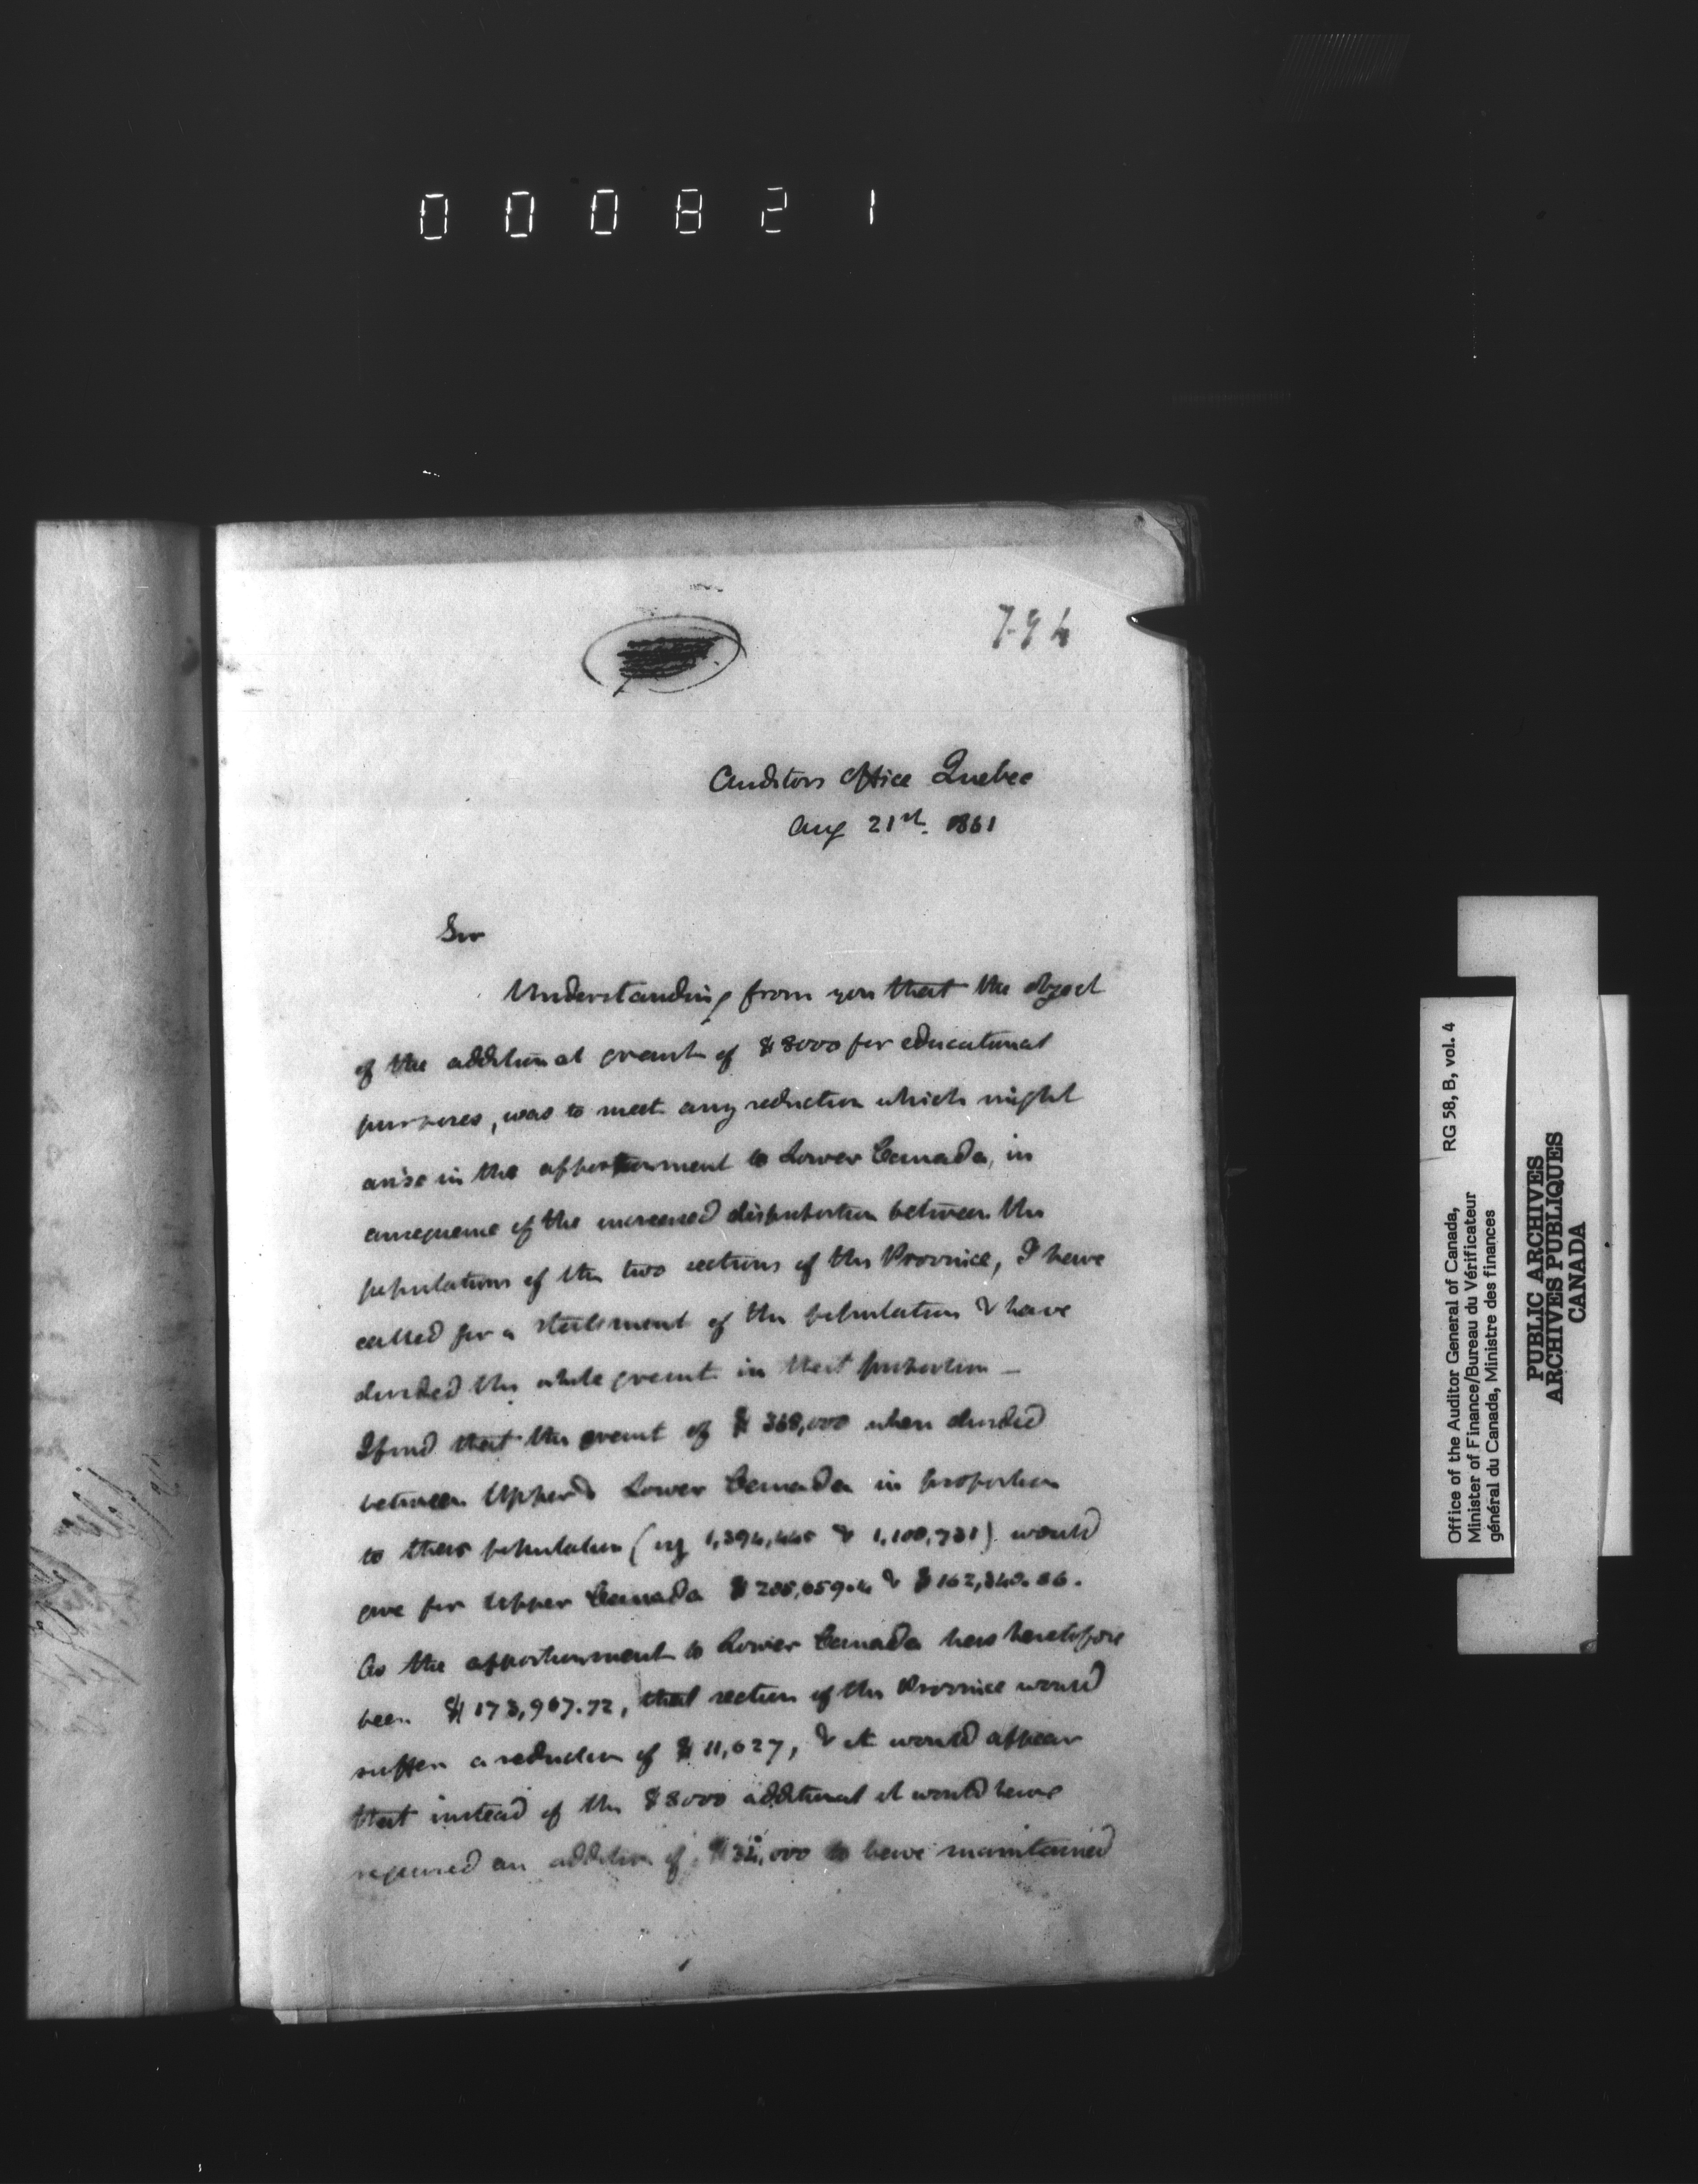 000821
794
Auditors Office Quebec
Aug 21st. 1861
Sir
Understanding from you that the object
of the additional grant of $8000 for educational
purposes, was to meet any reduction which might
arise in the apportionment to Lower Canada, in
consequence of the increased disproportion between the
populations of the two sections of the Province, I have
called for a statement of the population & have
divided the whole grant in that proportion –
I find that the grant of $368,000 when divided
between Upper & Lower Canada in proportion
to their population (vz 1,394,445 & 1,100,731) would
give for Upper Canada & $162,340.86.
As the apportionment to Lower Canada has heretofore
been $173,967.72, that section of the Province would
suffer a reduction of $11,627, & it would appear
that instead of the $8000 additional it would have
required an addition of to have maintained
Office of the Auditor General of Canada, RG 58, B, vol. 4
Minister of Finance/Bureau du Vérificateur
général du Canada, Ministre des finances
PUBLIC ARCHIVES
ARCHIVES PUBLIQUES
CANADA